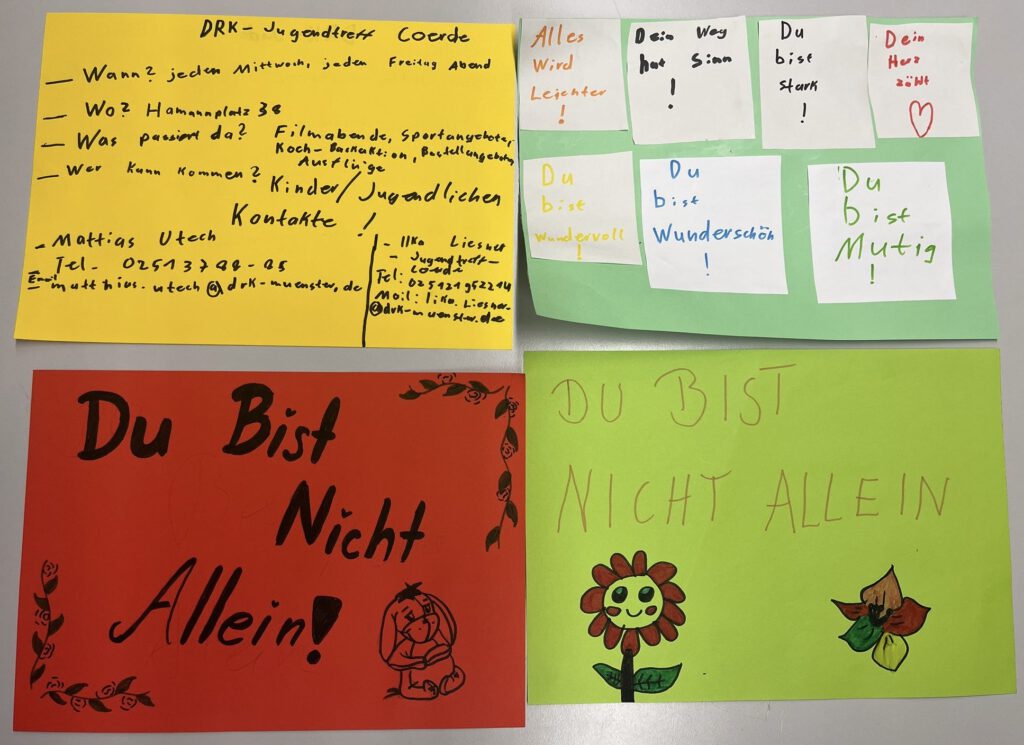 DRK- Jugendtreff Coerde
— Wann? jeden Mittwoch, jeden Freitag Abend
— Wo? Hamannplatz 38
— Was passiert da? Filmabende, Sportangebote,
Koch- Backaktion, Bastellangebote,
Ausflüge
— Wer kann kommen? Kinder/Jugendlichen
Kontakte !
- Mattias Utech
Tel-
Email
- matthias.utech@drk-muenster.de
- Ilka Liesner
- Jugendtreff-
Tel:
Mail: Liesner-
@drk-muenster.de
Alles
Wird
Leichter
!
Dein Weg
hat Sinn
!
Du
bist
stark
!
Dein
Herz
zählt
Du
bist
wundervoll
!
Du
bist
Wunderschön
!
Du
bist
Mutig
!
Du Bist
Nicht
Allein!
DU BIST
NICHT ALLEIN